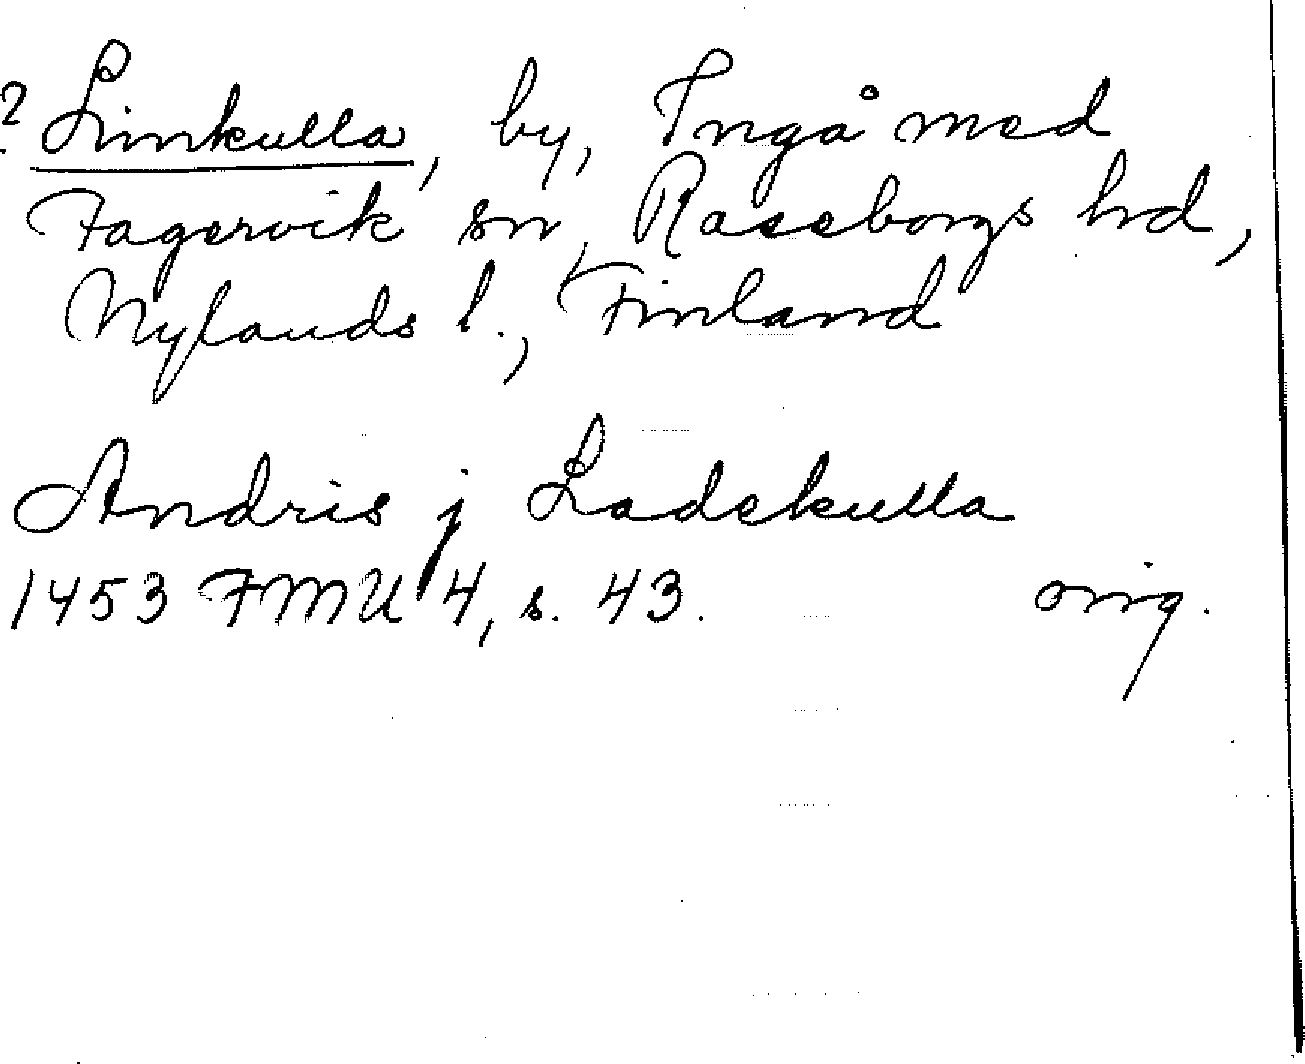 ? Linkulla, by, Ingå med
Fagervik sn, Raseborgs hd,
Nylands l., Finland
Andris j Ladekulla
1453 FMU 4, s. 43. orig.